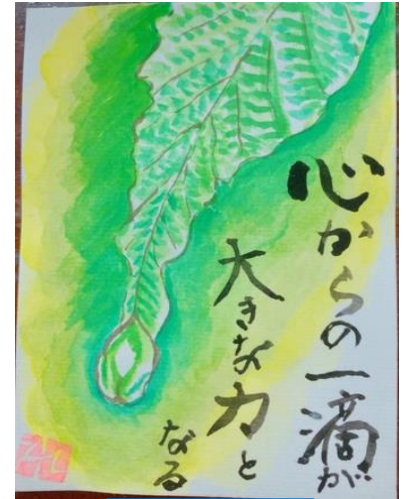 心からの一滴が
大きな力と
なる